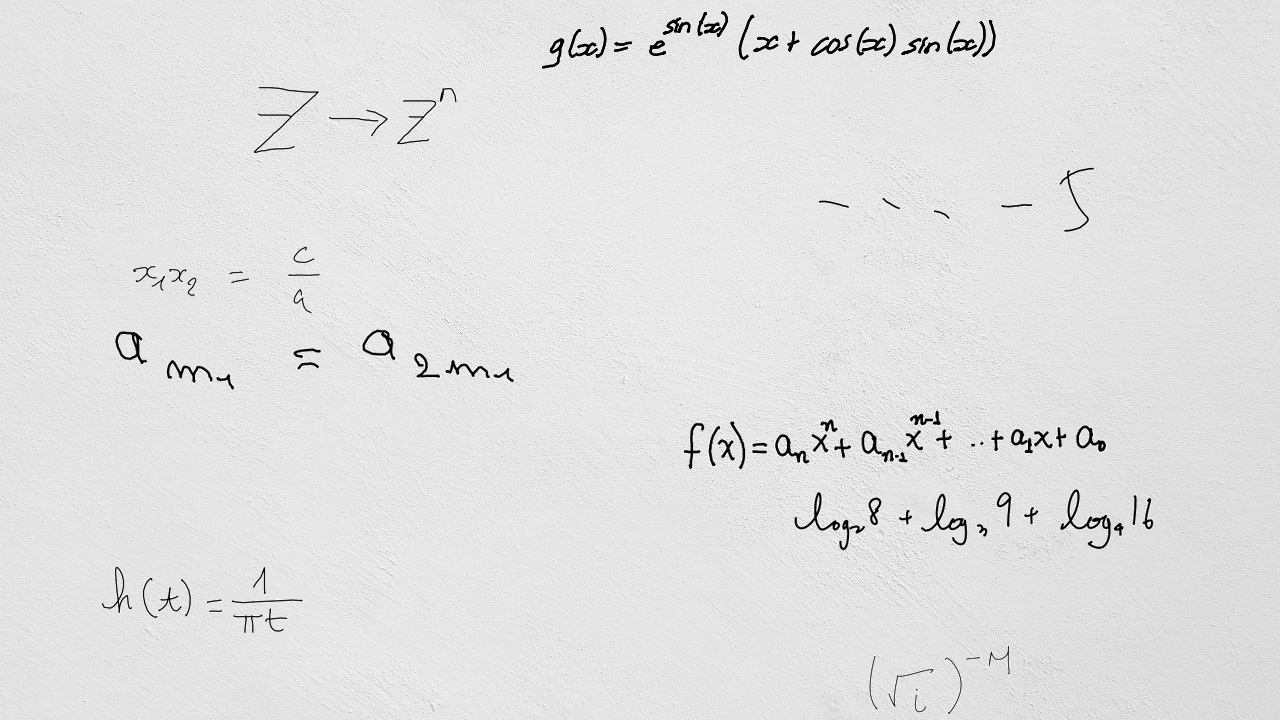 g(x) = e^{sin(x)} (x + cos(x) sin(x))
ℤ → ℤ^n
x_1 x_2 = \frac{c}{a}
a_{m_1} = a_{2m_1}
f(x) = a_n x^n + a_{n-1} x^{n-1} + .. + a_1 x + a_0
log_2 8 + log_3 9 + log_4 16
h(t) = \frac{1}{πt}
(√i)^{-M}